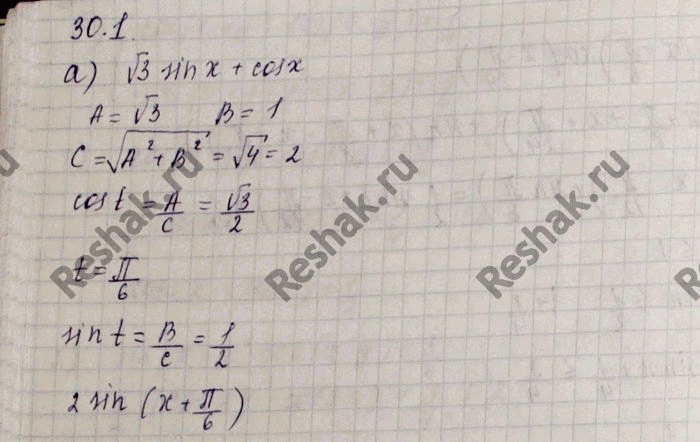 30.1
а) √3 sin x + cos x
A = √3 B = 1
C = √(A² + B²) = √4 = 2
cos t = A/C = √3/2
t = π/6
sin t = B/C = 1/2
2 sin (x + π/6)
Reshak.ru
Reshak.ru
Reshak.ru